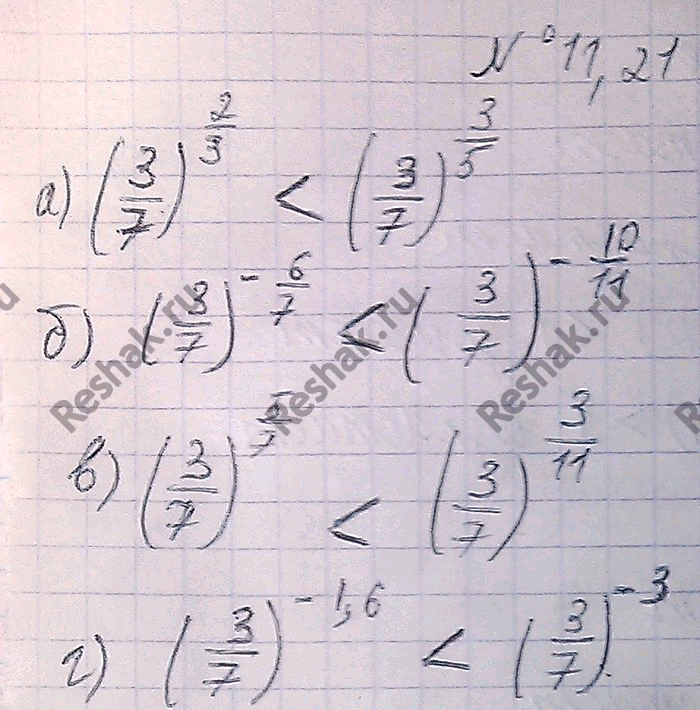 № 11,21
а) (3/7)^(2/3) < (3/7)^(3/5)
б) (3/7)^(- 6/7) < (3/7)^(- 10/11)
в) (3/7) < (3/7)^(3/11)
г) (3/7)^(- 1,6) < (3/7)^(- 3).
Reshak.ru Reshak.ru Reshak.ru